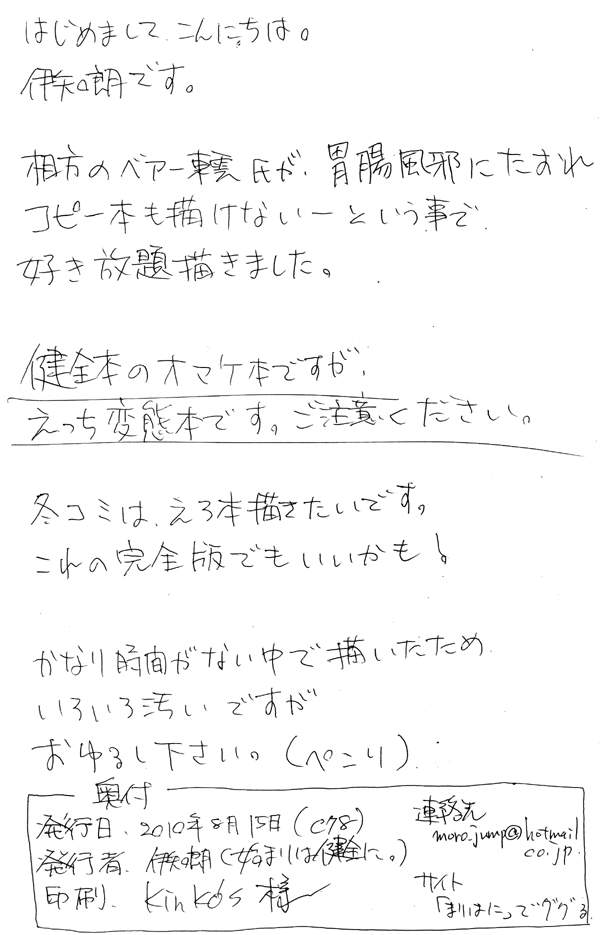 はじめまして、こんにちは。
伊矢口朗です。
相方のベアー轟氏が、胃腸風邪にたおれ
コピー本も描けないーという事で
好き放題描きました。
健全本のオマケ本ですが、
えっち変態本です。ご注意ください。
冬コミは、えろ本描きたいです。
これの完全版でもいいかも!
かなり時間がない中で描いたため
いろいろ汚いですが
おゆるし下さい。(ぺこり)
奥付
発行日. 2010年8月15日(C78)
発行者. 伊矢口朗(始まりは健全に。)
印刷. Kinko's 様
連絡先
moro_jump@hotmail
co.jp.
サイト
「まりはに」でググる